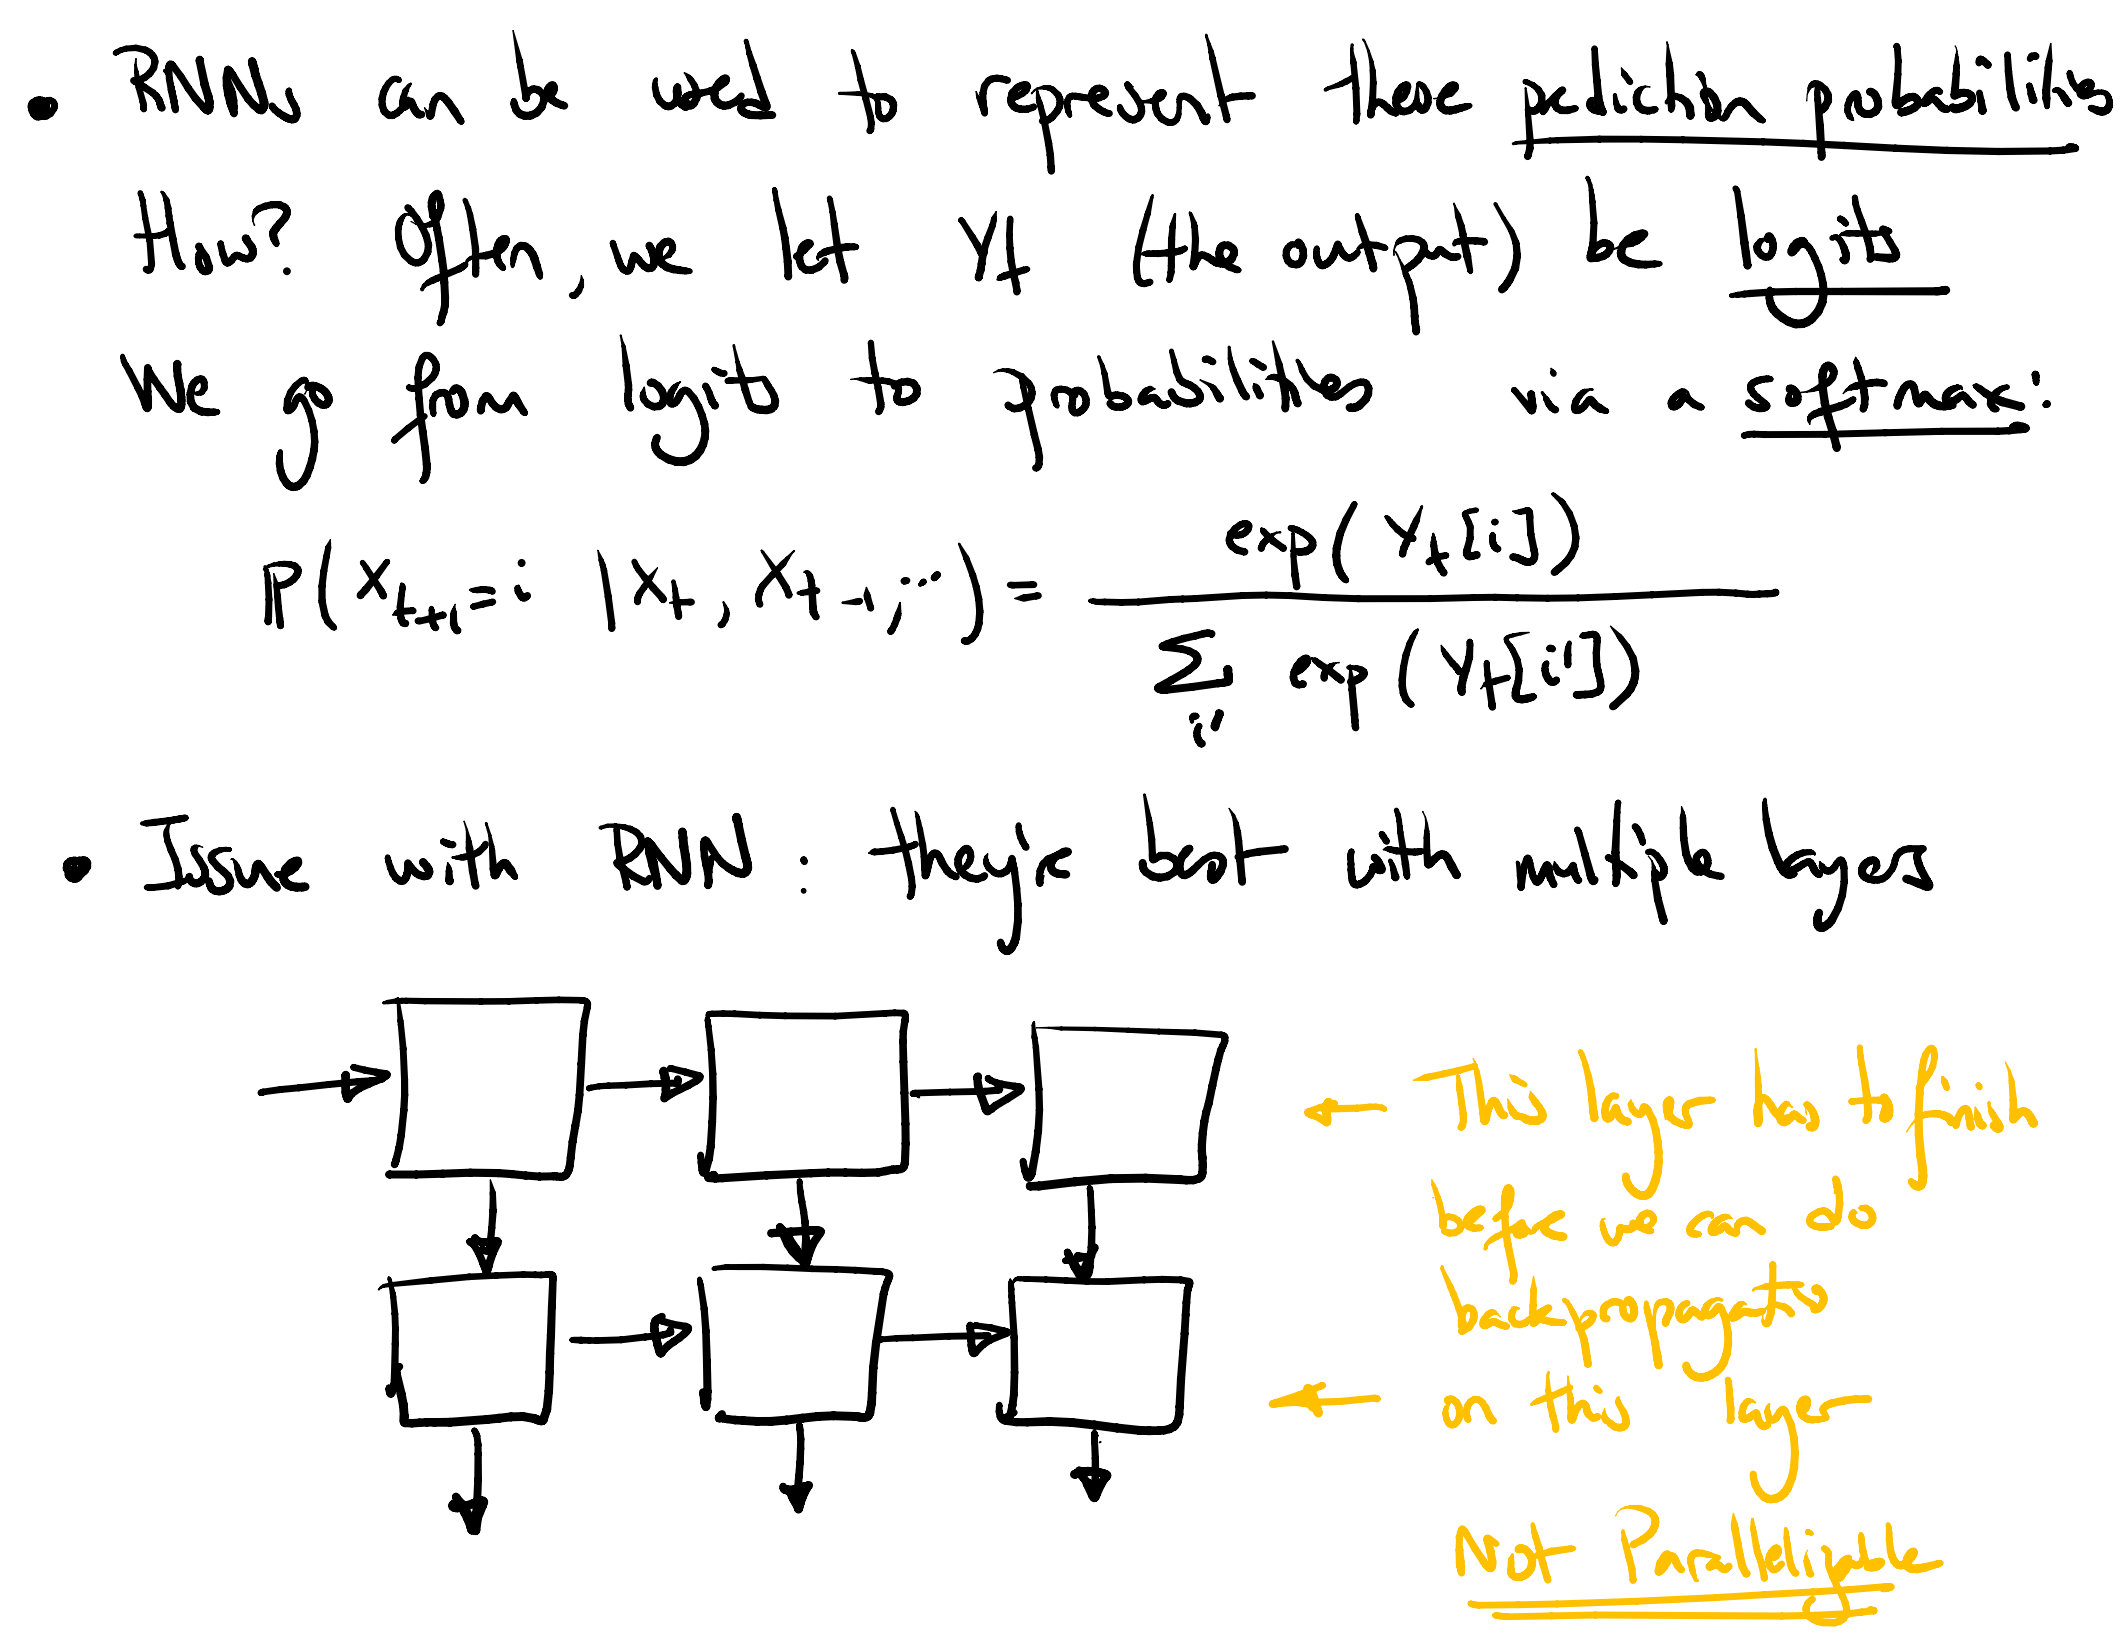 • RNNs can be used to represent these prediction probabilities
How? Often, we let Yt (the output) be logits
We go from logits to probabilities via a softmax:
P(X_{t+1}=i | X_t, X_{t-1}, ...) = exp(Y_t[i]) / Σ_{i'} exp(Y_t[i'])
• Issue with RNN: they're best with multiple layers
← This layer has to finish
before we can do
backpropagato
← on this layer
Not Parallelizable